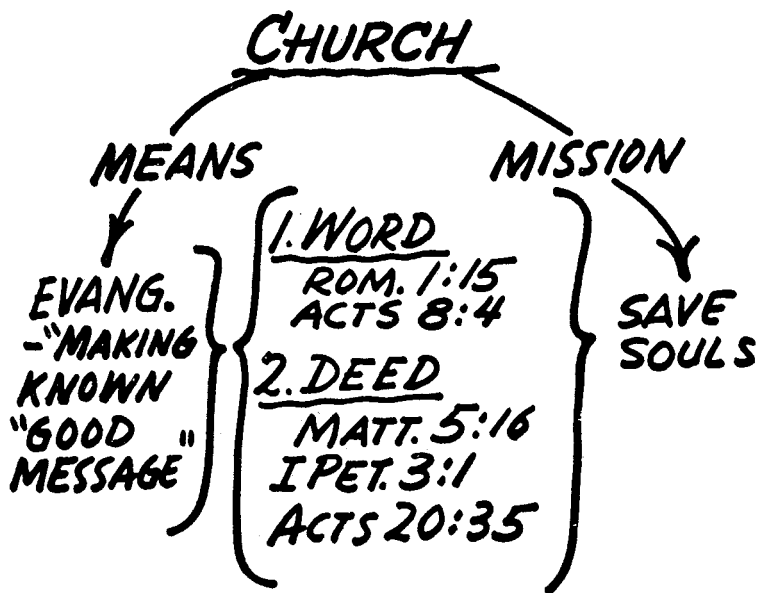 CHURCH
MEANS
MISSION
EVANG.
-"MAKING
KNOWN
"GOOD "
MESSAGE
1. WORD
ROM. 1:15
ACTS 8:4
2. DEED
MATT. 5:16
I PET. 3:1
ACTS 20:35
SAVE
SOULS